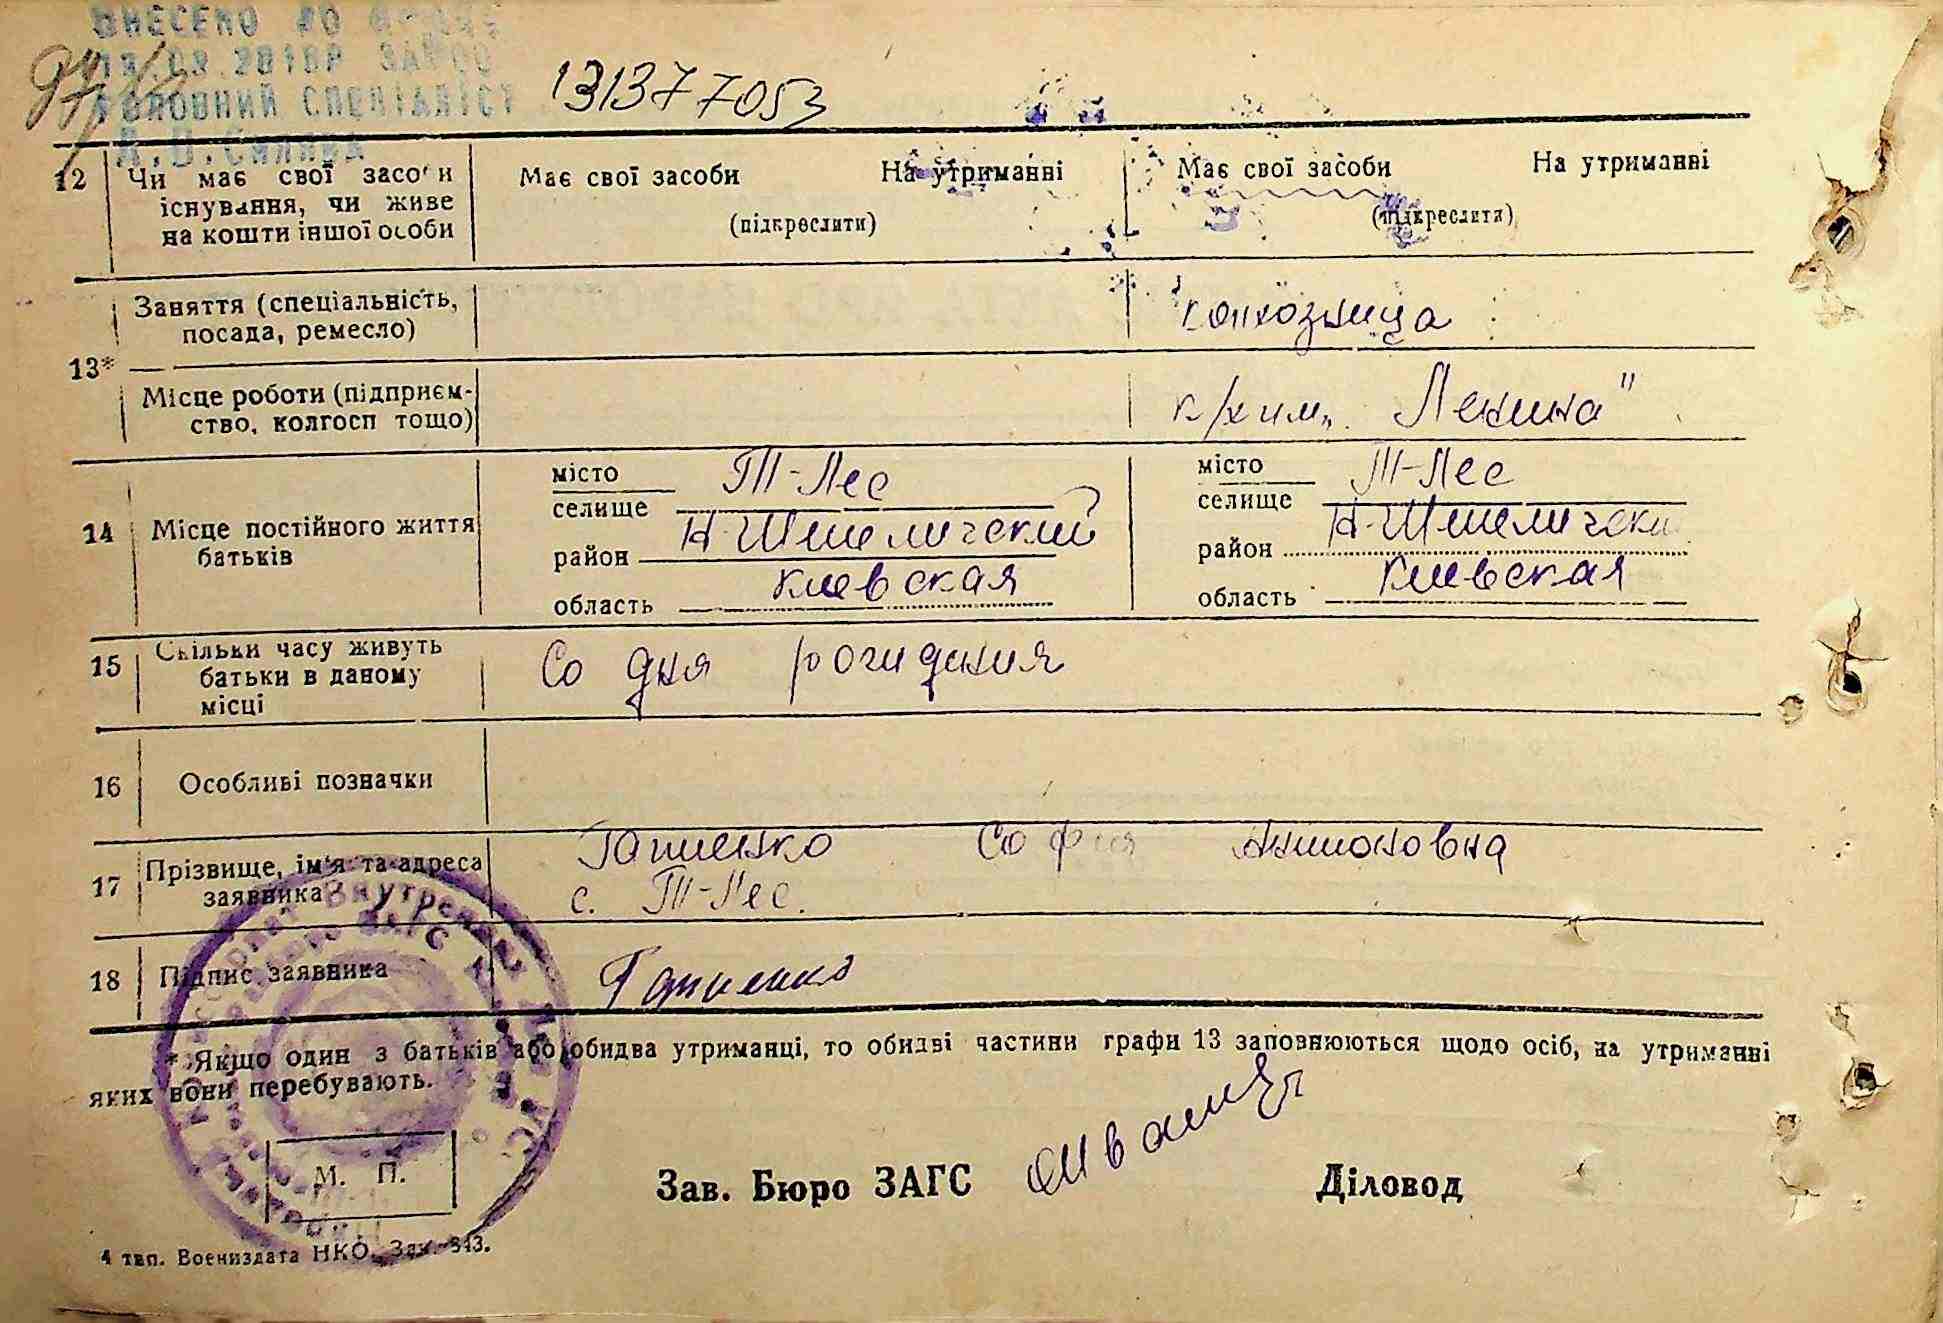 ВНЕСЕНО ДО
ГОЛОВНИЙ СПЕЦІАЛІСТ
131377053
12 Чи має свої засоби існування, чи живе на кошти іншої особи
Має свої засоби На утриманні
(підкреслити)
Має свої засоби На утриманні
(підкреслити)
13*
Заняття (спеціальність,
посада, ремесло)
колхозница
Місце роботи (підприєм-
ство, колгосп тощо)
к/х им. „Ленина"
14 Місце постійного життя
батьків
місто
селище Т-Лес
район Н-Шепелический
область киевская
місто
селище Т-Лес
район Н-Шепелически
область киевская
15 Скільки часу живуть
батьки в даному
місці
Со дня рождения
16 Особливі позначки
17 Прізвище, ім'я та адреса
заявника
Гапиенко София Антоновна
с. Т-Лес.
18 Підпис заявника
Гапиенко
* Якщо один з батьків або обидва утриманці, то обидві частини графи 13 заповнюються щодо осіб, на утриманні
яких вони перебувають.
М. П.
Зав. Бюро ЗАГС
Діловод
4 тип. Воениздата НКО. Зак. 343.